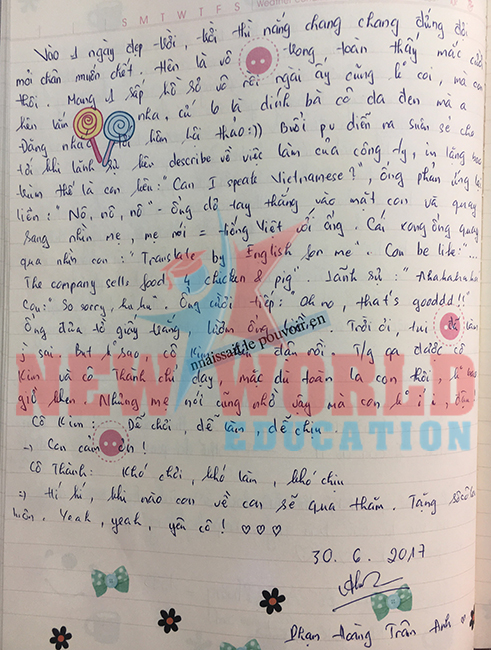 S M T W T F S
Vào 1 ngày đẹp trời, trời thì nắng chang chang đứng đôi
mỏi chân muốn chết, Hên là vô trong toàn thấy mắc cười
thôi. Mang 1 sấp hồ sơ vô rồi ngài ấy cũng k coi, mà con
hên lắm nha, cứ 6 là dính bà cô da đen mà a
Đăng nha hên hồi tháo :)) Buổi pv diễn ra suôn sẻ cho
tới khi lãnh sự kêu describe về việc làm của công ty, in lăng
thế là con kêu: "Can I speak Vietnamese?", ổng phản ứng lại
liền: "Nô, nô, nô" - ổng dô tay thẳng vào mặt con và quay
sang nhìn mẹ, mẹ nói = tiếng Việt với ổng. Cái xong ổng quay
qua nhìn con: "Translate by English for me". Con be like: "...
The company sells food 4 chicken & pig". Lãnh sự: "Ahahahaha
Con: "So sorry, hu hu". Ông cười tiếp: "Oh no, that's gooddd!!"
Ông đưa tờ giấy trắng ông Trời ơi, tui đã làm
gì sai. But k sao cô dặn rồi. T/g qa được cô
Kim và cô Thành chỉ dạy, mặc dù toàn la con thôi, k bao
giờ khen. Nhưng mẹ nói cũng nhờ vậy mà con k
nhaissait le pouvoir.cn
NEW WORLD
EDUCATION
Cô Kim: Dễ chơi, dễ làm, dễ chịu
→ Con cảm ơn!
Cô Thành: Khó chơi, khó làm, khó chịu
=) Hí hí, khi nào con về con sẽ qua thăm. Tặng sôcôla
luôn. Yeah, yeah, yêu cô! ♡♡♡
30. 6. 2017
Phạm Hoàng Trân Anh ♡